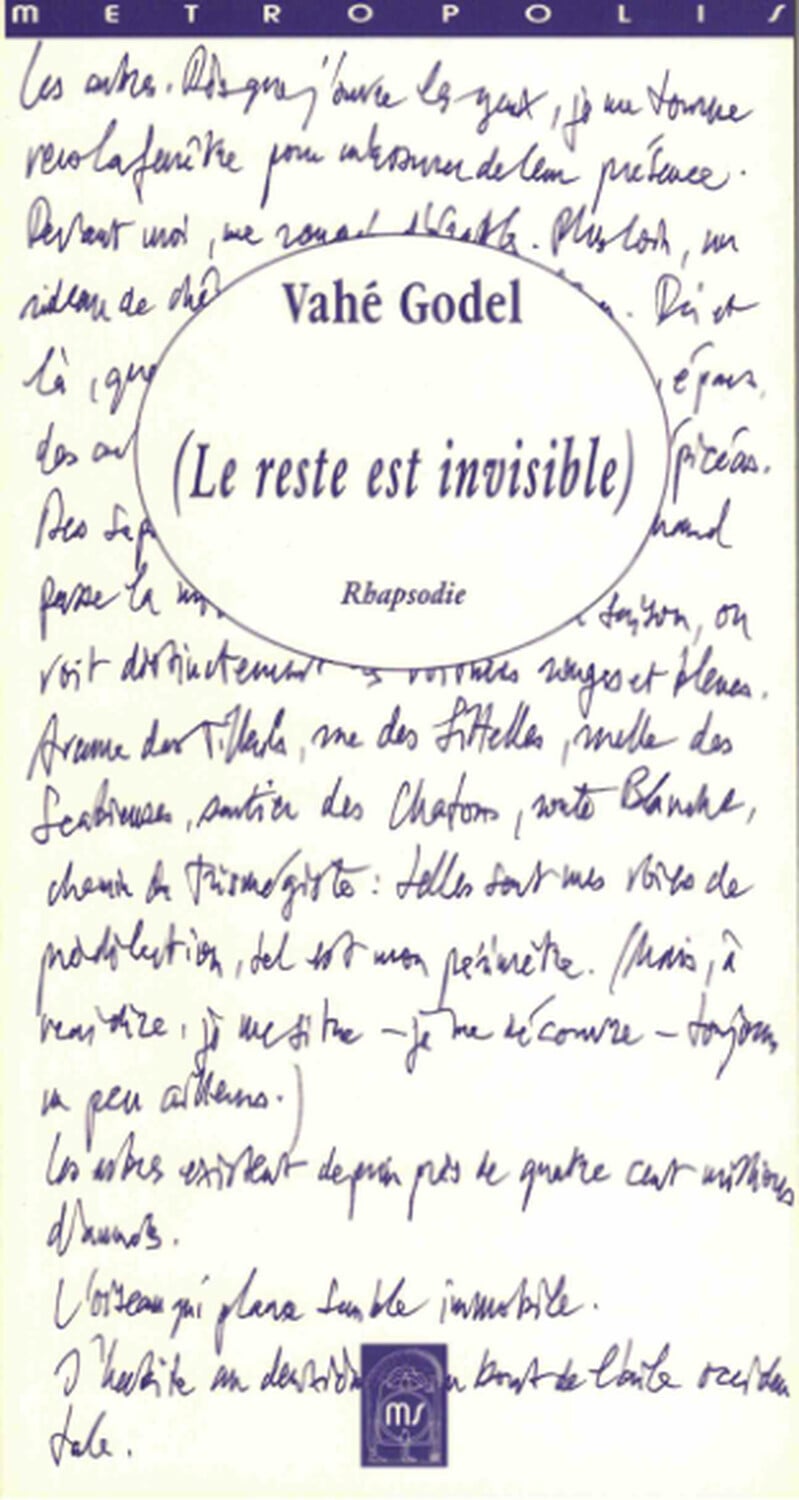 METROPOLIS
Les arbres. Dès que j'ouvre les yeux, je me tourne
vers la fenêtre pour m'assurer de leur présence.
Devant moi, une d'érable. Plus loin, un
rideau de Dci et
là, épars,
des épicéas.
Des
passe la saison, on
voit distinctement rouges et bleues.
Vahé Godel
(Le reste est invisible)
Rhapsodie
Avenue des Tilleuls, rue des Sittelles, ruelle des
Scabieuses, sentier des Chatons, route Blanche,
chemin du Trismégiste : telles sont mes voies de
prédilection, tel est mon périmètre. (Mais, à
vrai dire, je me situe – je me découvre – toujours
un peu ailleurs.)
Les arbres existent depuis près de quatre cent millions
d'années.
L'oiseau qui plane semble immobile.
J'habite au bout de l'aile occiden
tale.
ms